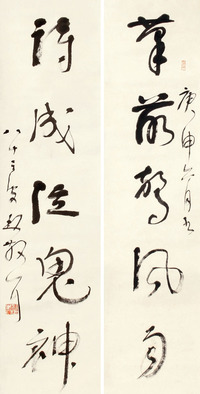 庚申六月
筆落驚風雨
詩成泣鬼神
八十三叟散耳